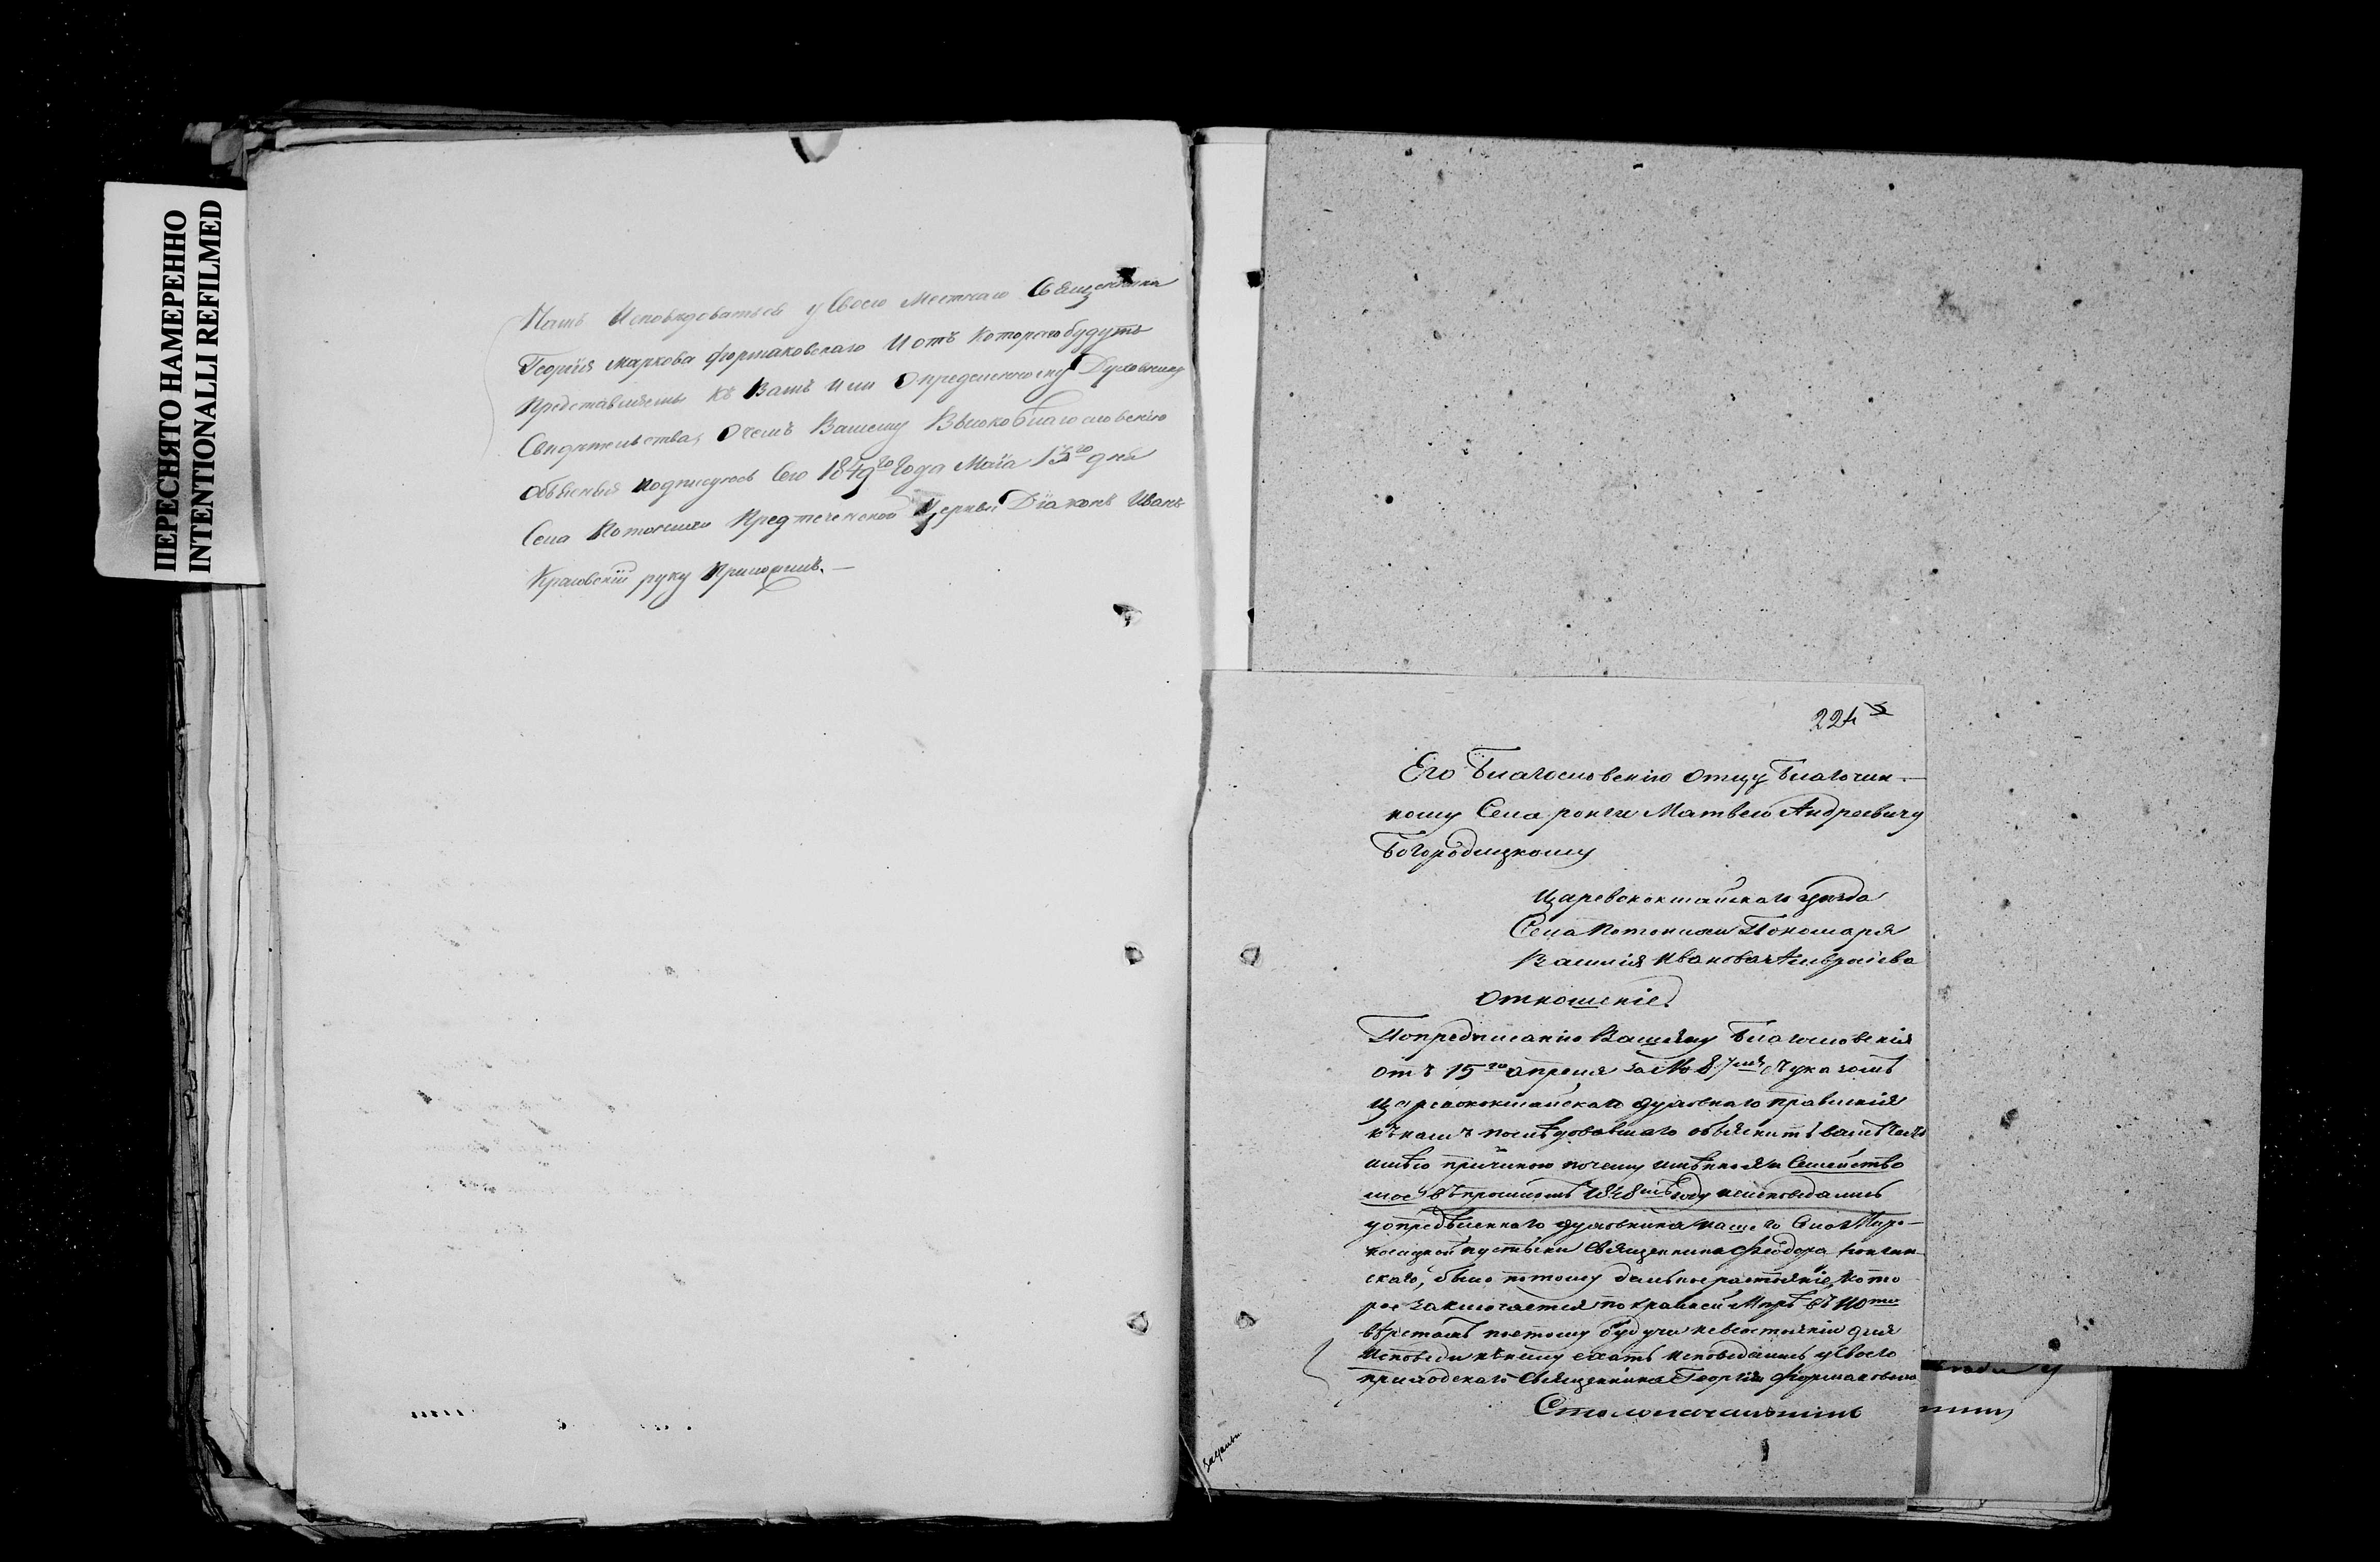 ПЕРЕСНЯТО НАМЕРЕННО
INTENTIONALLI REFILMED
Намъ Исповѣдоватьса у Своего Местнаго Священника
Георгія Маркова Формаковскаго И отъ Котораго будутъ
Представляемы Къ Вамъ Или Определенному Духовнику
Свидѣтельства, Очемъ Вашему Высокоблагословенію
Объясняя подписуюсь Сего 1849го Года Маїа 13го дня
Села Предтеченской Церкви Діаконъ Иванъ
руку Приложилъ. —
224
Его Благословенію отцу Благочин-
ному Села ронги Матвею Андреевичу
Богородицкому
Царевококшайскаго уѣзда
Села Пономаря
Василія Иванова
отношеніе
По предписанію Вашему Благословенія
отъ 15го апреля за № 87мъ, съ указомъ
Царевококшайскаго духовнаго правленія
къ намъ последовавшаго объяснить вамъ честь
имѣю причиною почему имѣнно я и Семейство
мое въ прошломъ 1848мъ году неисповедались
у опредѣленнаго духовника нашего
пустыни Священника Феодора
скаго, было потому дальное растояніе, кото
рое заключается по крайней Мерѣ въ
вѣрстахъ поетому будучи невсостояніи для
Исповеди къ нему ехать исповедались у Своего
приходскаго Священника Георгія Формаковскаго
Столоначальникъ